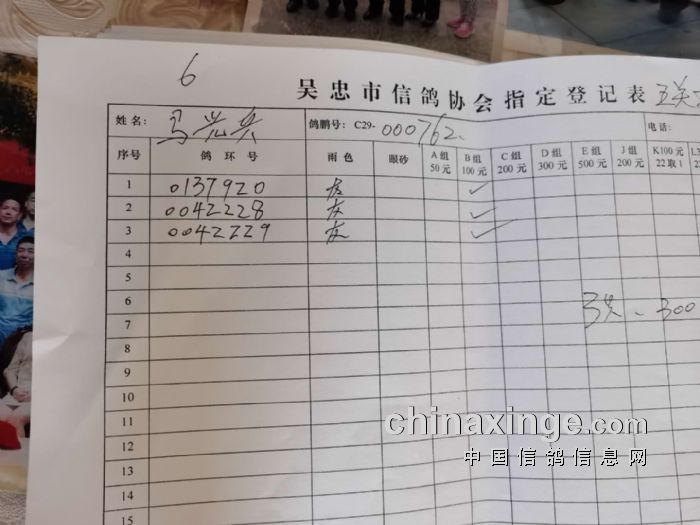 6
吴忠市信鸽协会指定登记表 五关
姓名： 马兴兵 鸽鹏号：C29- 000762 电话：
序号 鸽环号 雨色 眼砂 A组 50元 B组 100元 C组 200元 D组 300元 E组 500元 J组 200元 K100元 22取1
1 0137920 灰 ✓
2 0042228 灰 ✓
3 0042229 灰 ✓
4
5
6
7 300
8
9
10
11
12
13
14
15
chinaxinge.com
中国信鸽信息网